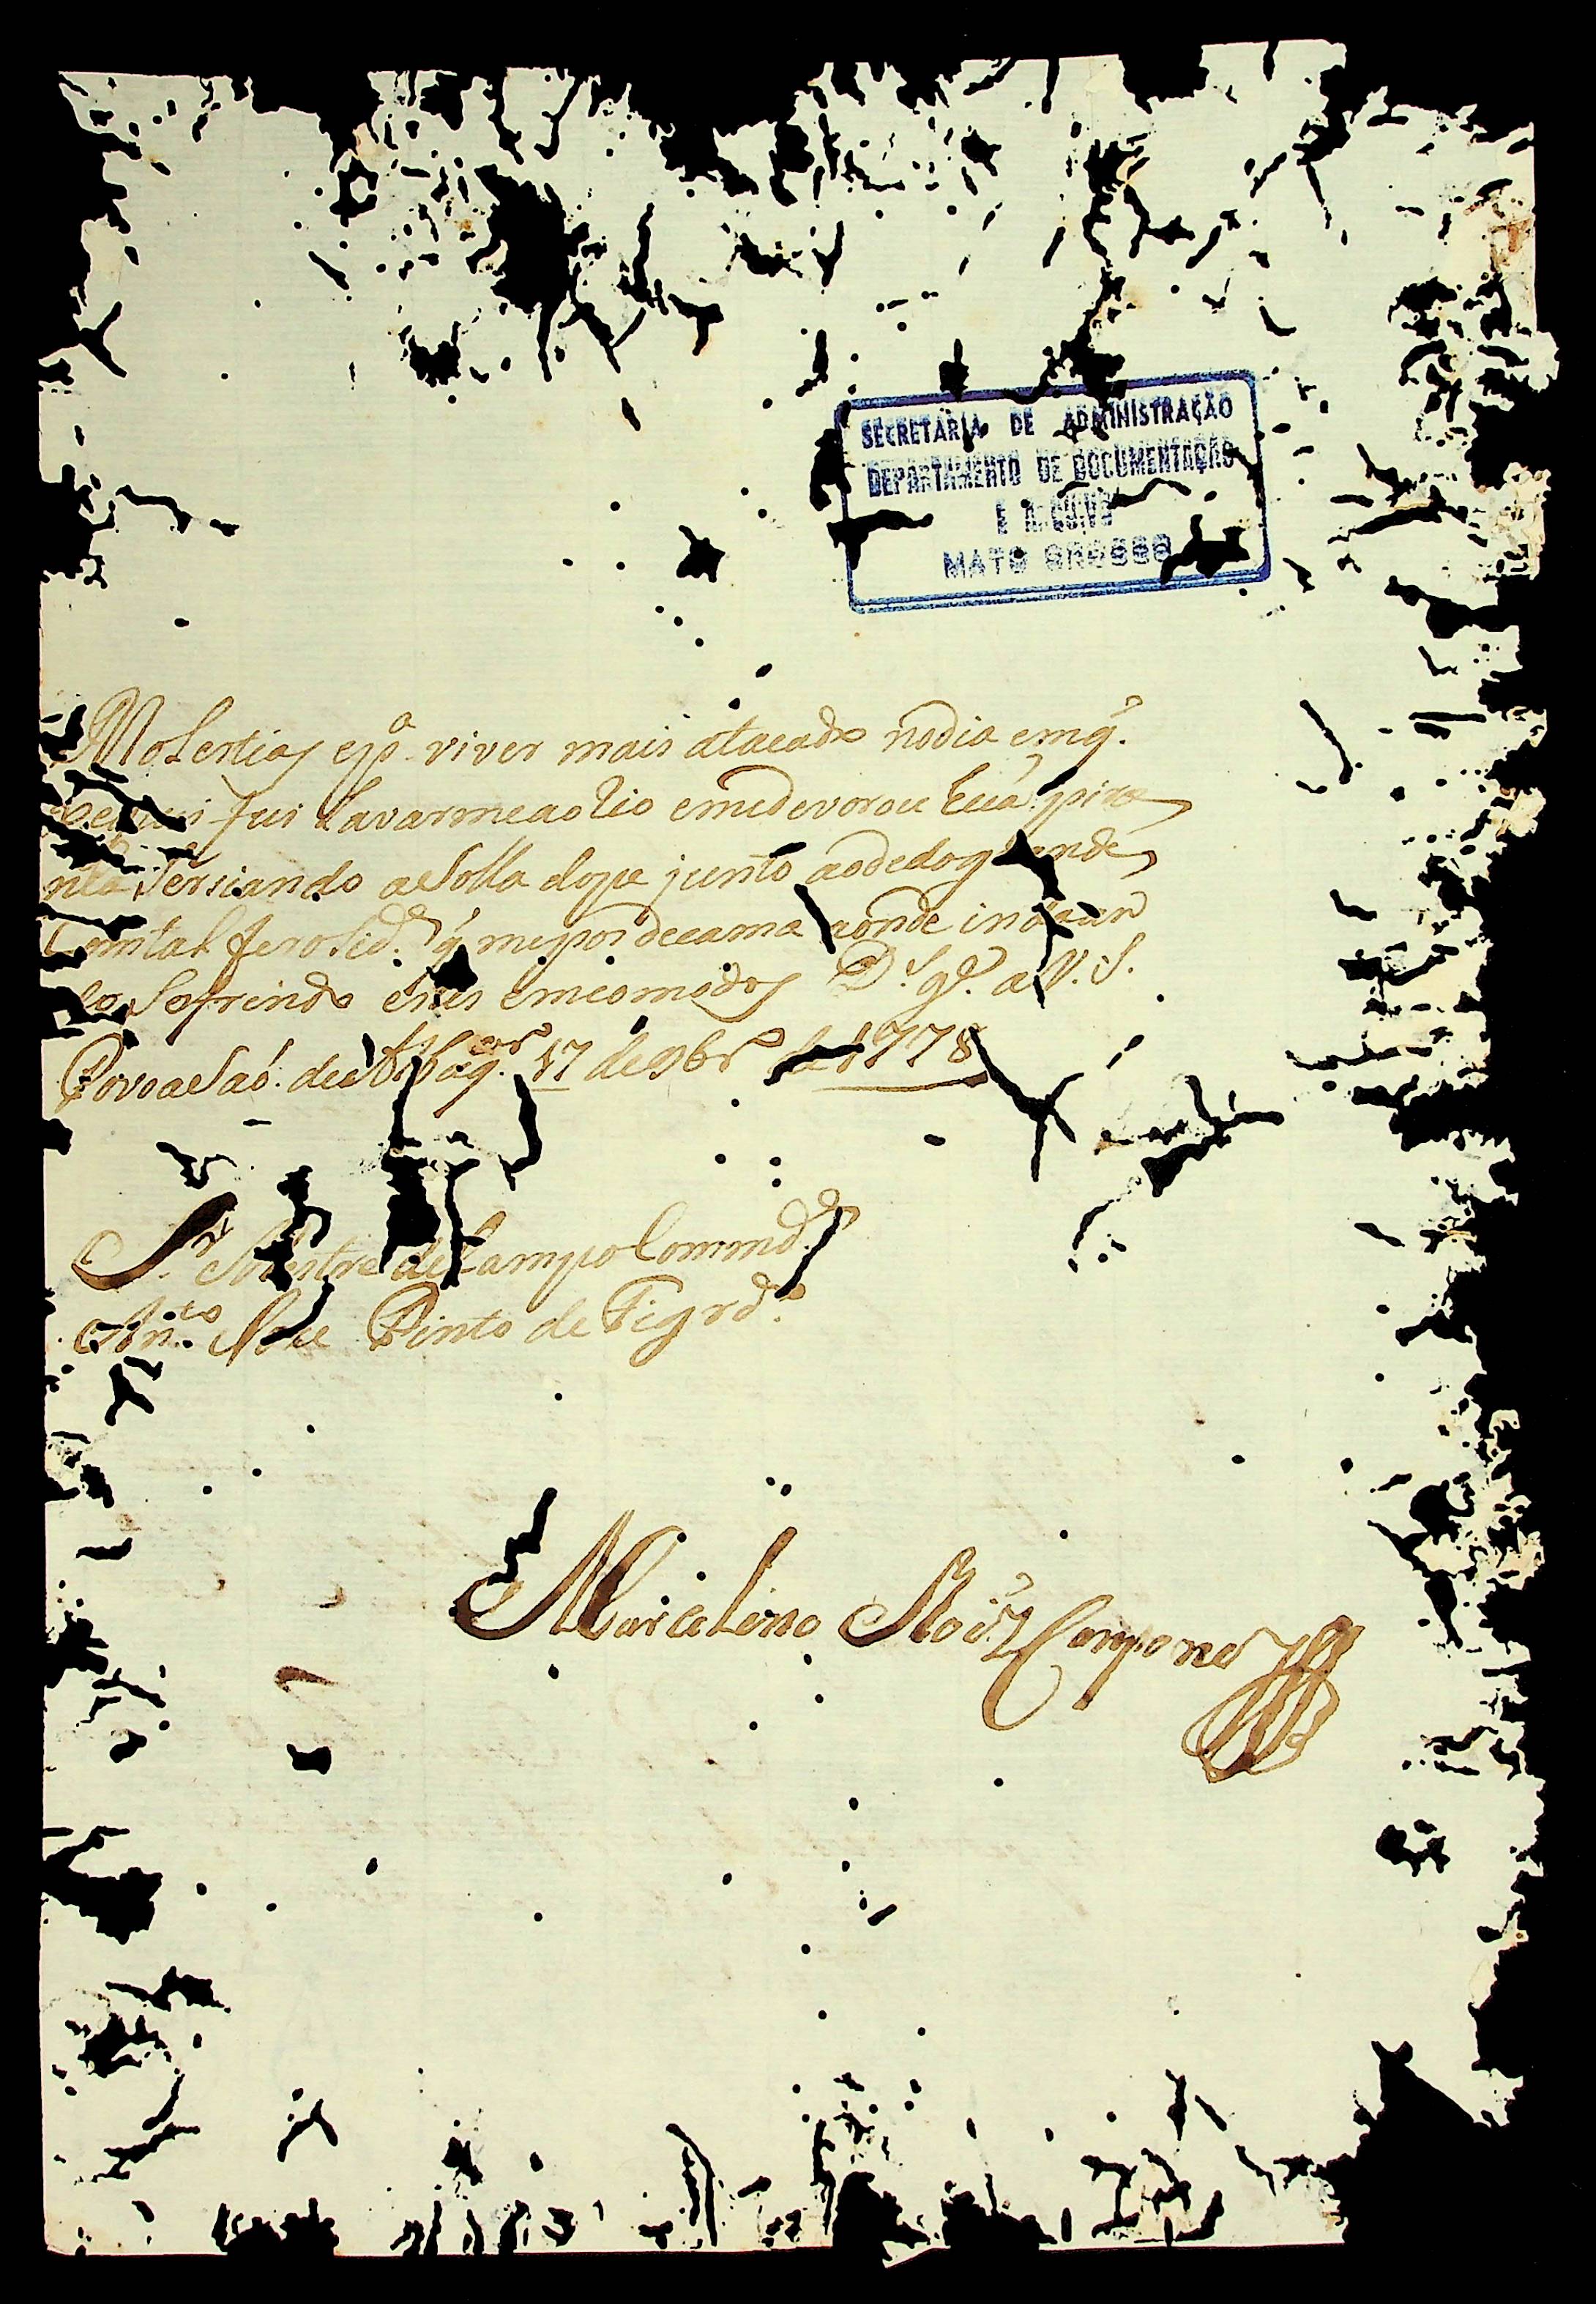 SECRETARIA DE ADMINISTRAÇÃO
DEPARTAMENTO DE DOCUMENTAÇÃO
E
MATO GROSSO
Molestias e pª viver mais atacado no dia em q̃.
fui Lavarme ao Rio e me devorou huã pira
nha aSolla do pe junto ao dedo grande
Com tal ferosidᵉ q̃ me pos de cama aonde inda
Sofrendo emcomodos Dˢ. gᵉ. a V. S.
PovoaSaõ. de 17 de 9brº de 1778
Sʳ. Mestre de Campo Commdᵉ
Anᵗᵒ. Jose Pinto de Figrdº.
Marcelino Roiz Camponez